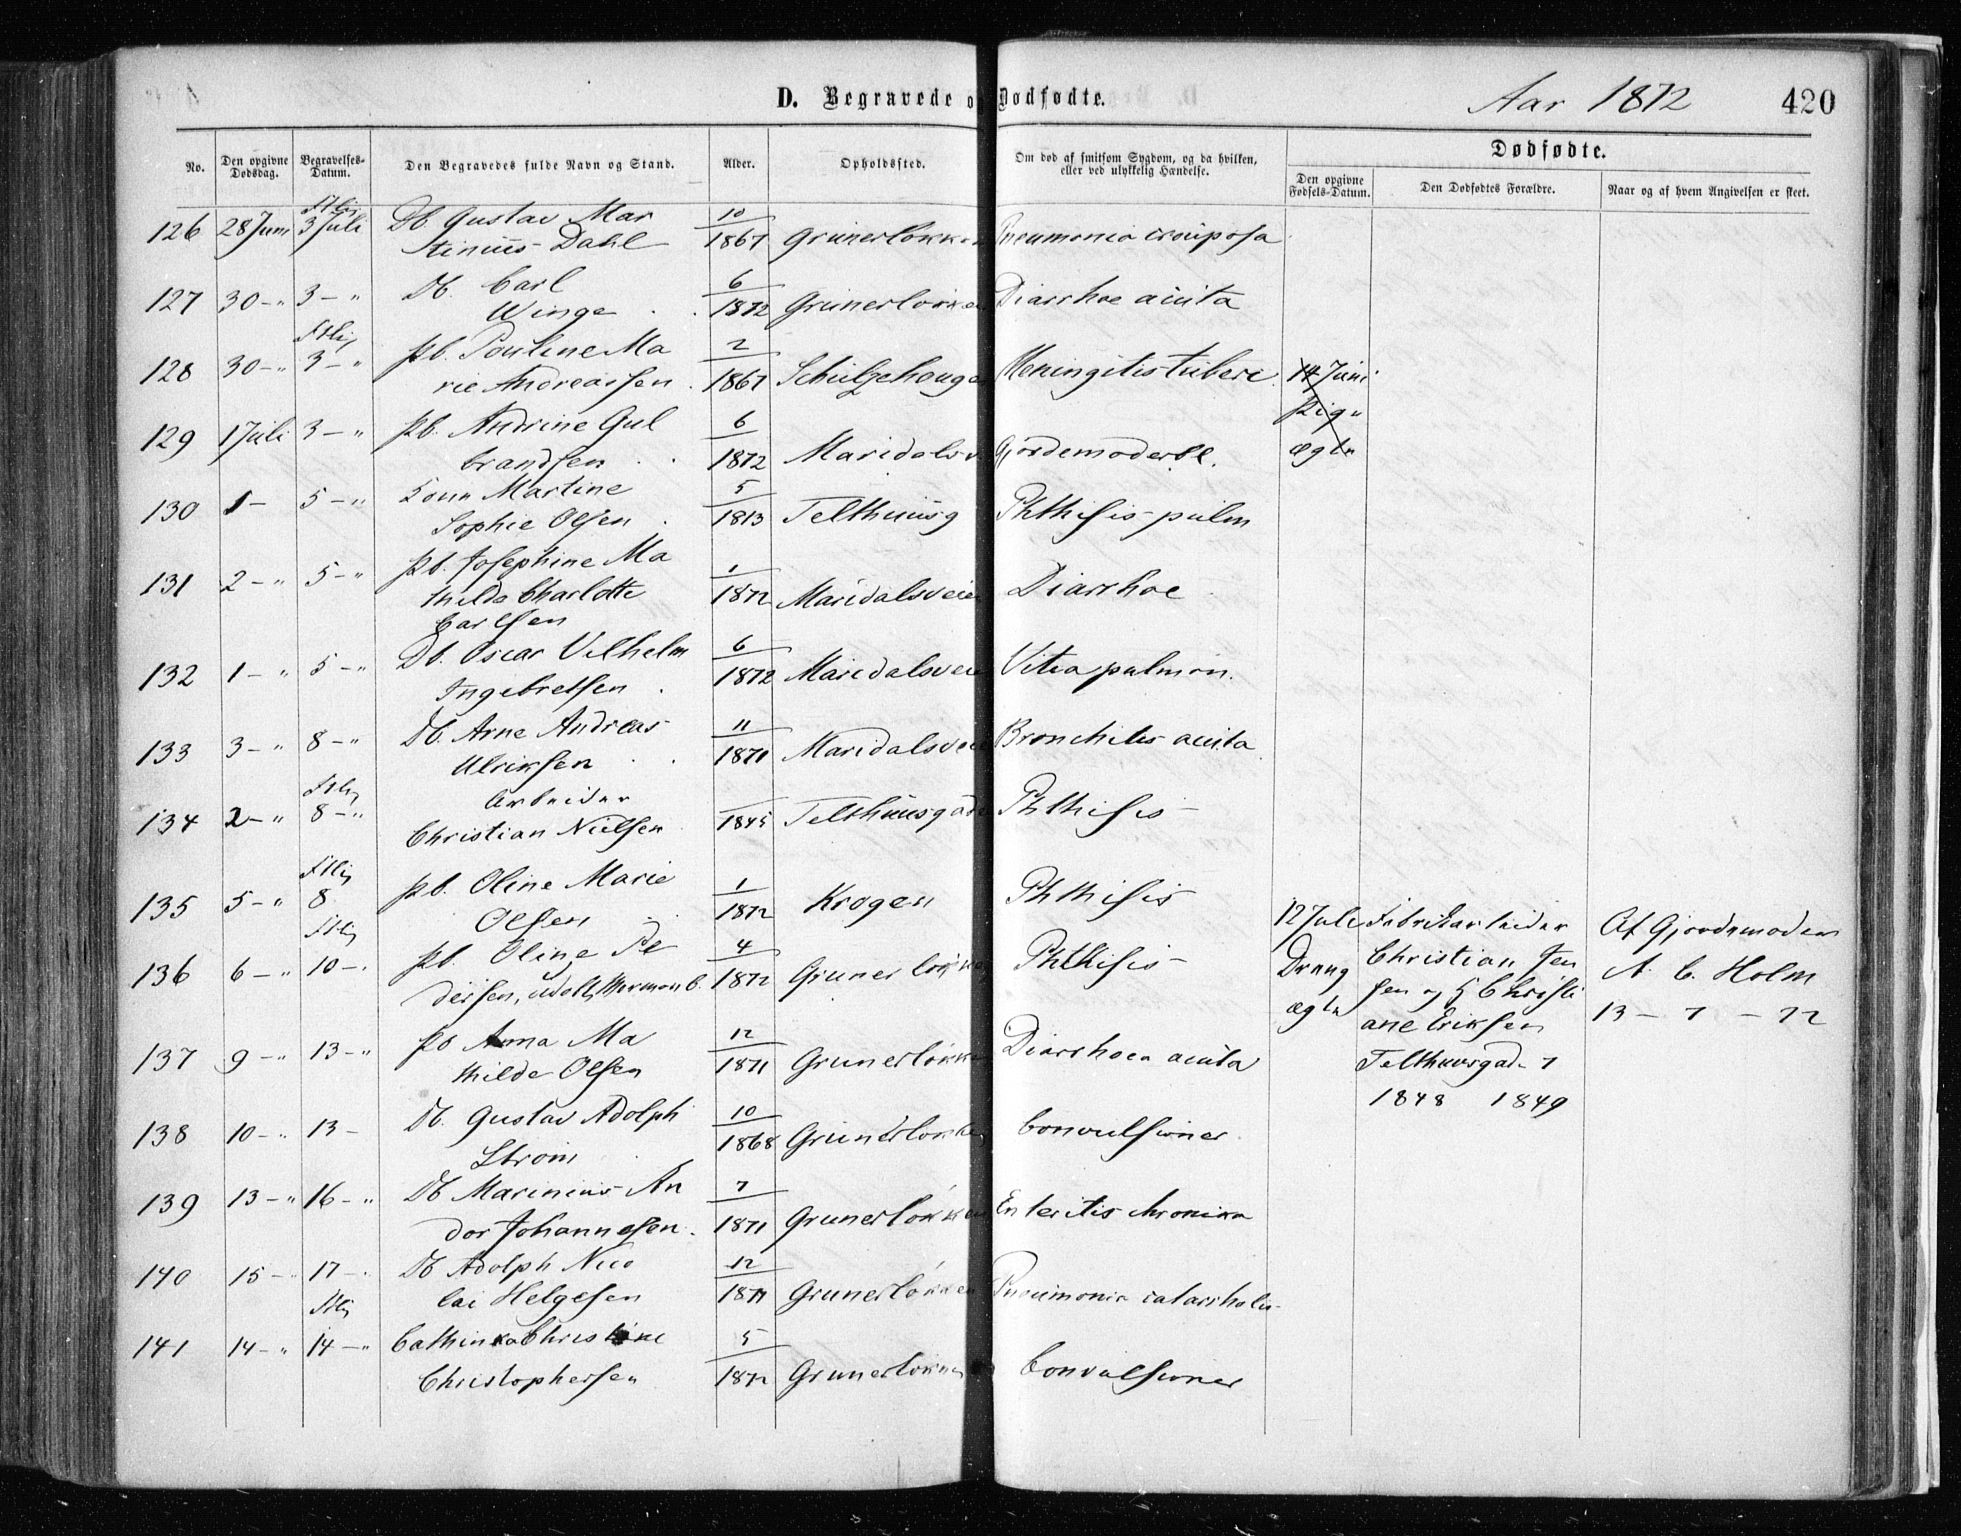 D. Begravede og Dødfødte.
Aar 1872
420
No.
Den opgivne Dødsdag.
Begravelses-Datum.
Den Begravedes fulde Navn og Stand.
Alder.
Opholdssted.
Om død af smitsom Sygdom, og da hvilken,
eller ved ulykkelig Hændelse.
Dødfødte.
Den opgivne Fødsels-Datum.
Den Dødfødtes Forældre.
Naar og af hvem Angivelsen er skeet.
126 28 Juni 3 Juli Db. Gustav Mar 10
tinius Dahl 1867 Grünerløkken Pneumonia crouposa
127 30 - " 3 - " Db. Carl 6
Winge 1872 Grünerløkken Diarrhoe acuta
128 30 - " 3 - " Pb. Pauline Ma 2
rie Andreassen 1867 Schulzehougen Meningitis tuberc. 14 Juni
Pig "
129 1 Juli 3 - " Pb. Andrine Gul 6
brandsen 1872 Maridalsv. Gjordemoderbl. ægte
130 1 - 5 - " Kone Martine 5
Sophie Olsen 1813 Telthuusg Phthisis pulm
131 2 - " 5 - " Pb. Josephine Ma 1
thilde Charlotte 1872 Maridalsveien Diarrhoe
Carlsen
132 1 - " 5 - " Db. Oscar Vilhelm 6
Ingebretsen 1872 Maridalsveie Vitia pulmon.
133 3 - " 8 - " Db. Arne Andreas 11
Ulriksen 1871 Maridalsveie Bronchitis acuta
134 2 - " 8 - " Arbeider
Christian Nielsen 1845 Telthuusgade Phthisis
135 5 - " 8 Pb. Oline Marie 1
Olsen 1872 Krogen Phthisis
136 6 - " 10 - Pb. Oline Pe 4
dersen, udolf Hermann b. 1872 Grünerløkken Phthisis
12 Juli
Dreng
ægte
Fabrikarbeider
Christian Jen
sen og K Christi
ane Eriksen
Telthuusgade 7
1848 1849
Af Gjordemoder
A. C. Holm
13 - 7 - 72
137 9 - " 13 - " Pb Anna Ma 12
thilde Olsen 1871 Grünerløkken Diarrhoea acuta
138 10 - " 13 - Db. Gustav Adolph 10
Strøm 1868 Grünerløkken Convulsioner
139 13 - " 16 - " Db Marinius An 7
dor Johannesen 1871 Grünerløkken Enteritis chronika
140 15 - 17 - Db Adolph Nico 12
lai Helgesen 1871 Grünerløkken Pneumonia catarrhalis
141 14 - " 14 - " Cathinka Christine 5
Christophersen 1872 Grünerløkken Convulsioner